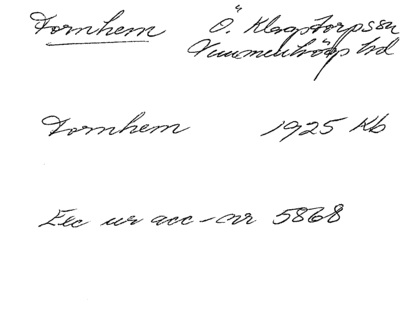 Tornhem Ö. Klagstorps sn
Vemmenhögs hd
Tornhem 1925 Kb
Exc ur acc-nr 5868